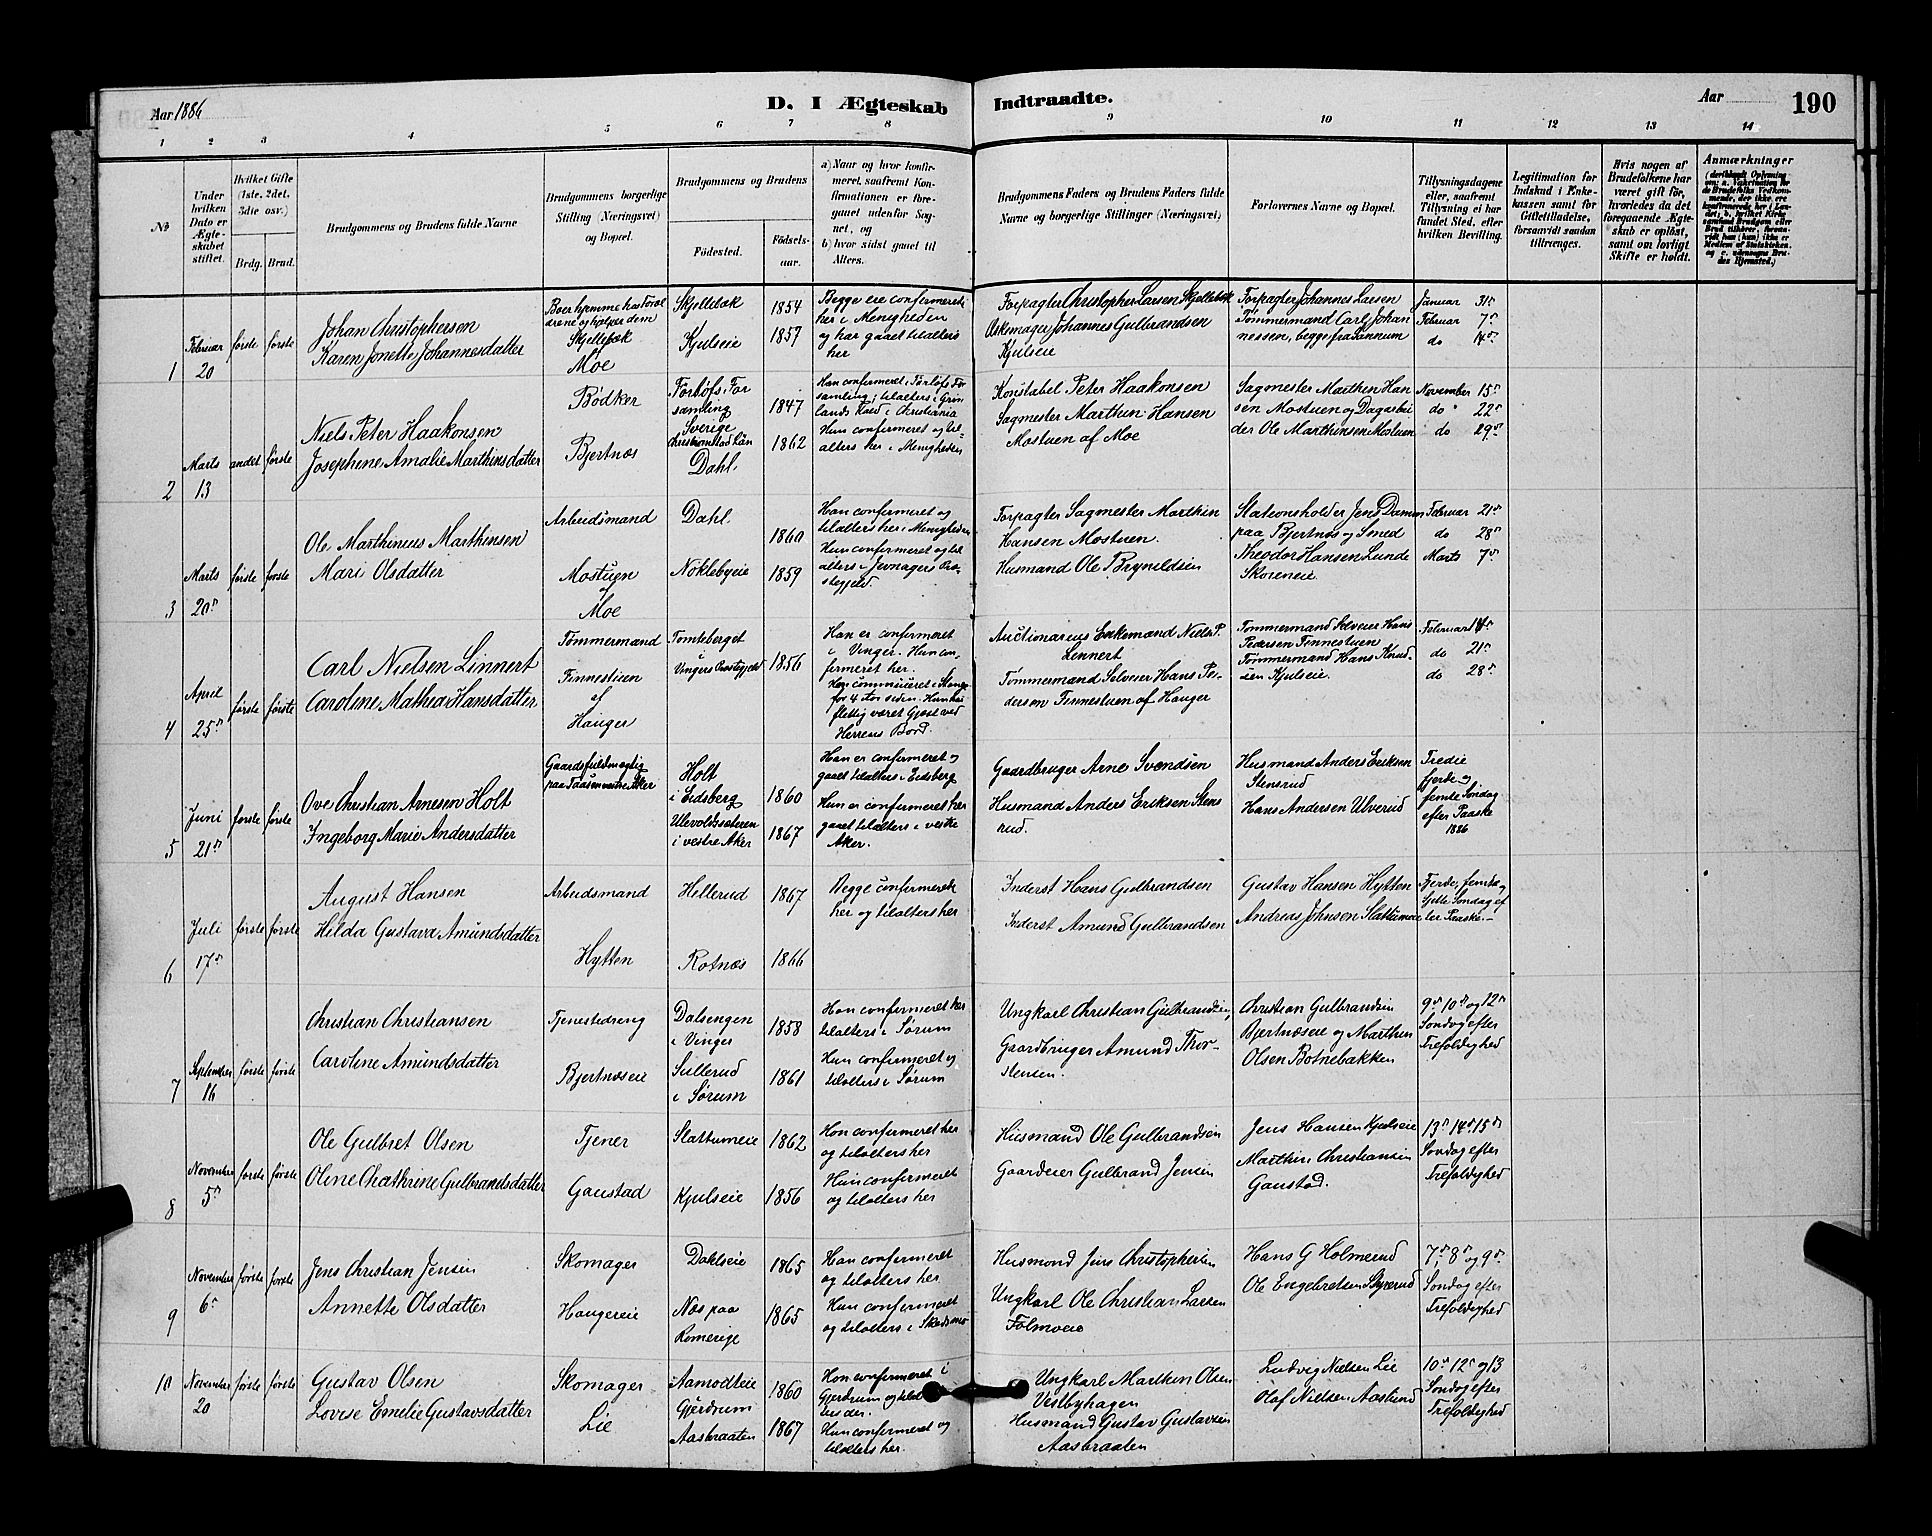 Aar 1886
D. I Ægteskab
Indtraadte.
Aar
190
1 2 3 4 5 6 7 8 9 10 11 12 13 14
No
Under hvilken Dato er Ægteskabet stiftet.
Hvilket Gifte (1ste, 2det, 3die osv.)
Brdg. Brud.
Brudgommens og Brudens fulde Navne
Brudgommens borgerlige Stilling (Næringsvei) og Bopæl.
Brudgommens og Brudens
Fødested.
Fødselsaar.
a) Naar og hvor konfirmeret, saafremt Konfirmationen er foregaaet udenfor Sognet, og
b) hvor sidst gaaet til Alters.
Brudgommens Faders og Brudens Faders fulde Navne og borgerlige Stillinger (Næringsvei)
Forlovernes Navne og Bopæl.
Tillysningsdagene eller, saafremt Tillysning ei har fundet Sted, efter hvilken Bevilling.
Legitimation for Indskud i Enkekassen samt for Giftetilladelse, forsaavidt saadan tiltrænges.
Hvis nogen af Brudefolkene har været gift før, hvorledes da det foregaaende Ægteskab er opløst, samt om lovligt Skifte er holdt.
Anmærkninger
1
Februar
20
første første
Johan Christophersen
Karen Jonette Johannesdatter
Boer hjemme hos Foræl
drene og hjælper dem
Skjellebæk
Moe
Skjellebæk
Kjulseie
1854
1857
Begge ere confirmerede
her i Menigheden
og har gaaet tilalters
her
Forpagter Christopher Larsen Skjellebæk
Askemager Johannes Gulbrandsen
Kjulseie
Forpagter Johannes Larsen
Tømmermand Carl Johan
nessen, begge fra Tannum
Januar 31te
Februar 7de
do 14de
2
Marts
13
andet første
Niels Peter Haakonsen
Josephine Amalie Marthinsdatter
Bødker
Bjertnæs
Forløfs For
samling
Sverige
Christianstad Län
Dahl.
1847
1862
Han confirmeret i Førløfs For
samling; tilalters i Grøn
lands Kred i Christiania
Hun confirmeret og til-
alters her i Menigheden
Konstabel Peter Haakonsen
Sagmester Marthin Hansen
Mostuen af Moe
Sagmester Marthin Han
sen Mostuen og Dagarbei
der Ole Marthinsen Mostuen
November 15de
do 22de
do 29de
3
Marts
20de
første første
Ole Marthinius Marthinsen
Mari Olsdatter
Arbeidsmand
Mostuen
af
Moe
Dahl
Nøklebyeie
1860
1859
Han confirmeret og
tilalters her i Menigheden
Hun confirmeret og til
alters i Jevnagers Præ-
stegjeld.
Forpagter Sagmester Marthin
Hansen Mostuen.
Husmand Ole Brynildsen
Stationsholder Jens Damm
paa Bjertnæs og Smed
Theodor Hansen Lunde
Skoreneie.
Februar 21de
do 28de
Marts 7de
4
April
25de
første første
Carl Nielsen Linnert
Caroline Mathea Hansdatter
Tømmermand
Finnestuen
af
Hauger
Tomteberget
i
Vingers Præstegjeld
1856
Han er confirmeret
i Vinger. Hun con-
firmeret her.
for 4 Aar siden. Hun har
flittig været Gjest ved
Herrens Bord.
Auctionarius Enkemand Niels P.
Linnert
Tømmermand Selveier Hans Pe-
dersen Finnestuen af Hauger
Tømmermand Selveier Hans
Pedersen Finnestuen
Tømmermand Hans Knud-
sen Kjulseie.
Februar 14de
do 21de
do 28de
5
Juni
21de
første første
Ove Christian Arnesen Holt
Ingeborg Marie Andersdatter
Gaardsfuldmægtig
paa Taasen vestre Aker
Holt
i Eidsberg
Ulevoldssæteren
i vestre Aker
1860
1867
Han er confirmeret og
gaaet tilalters i Eidsberg
Hun er confirmeret her
gaaet tilalters i vestre
Aker.
Gaardbruger Arne Svendsen
Husmand Anders Eriksen Stens
rud.
Husmand Anders Eriksen
Stensrud
Hans Andersen Ulverud
Tredie
fjerde og
femte Søndag
efter Paaske
1886
6
Juli
17de
første første
August Hansen
Hilda Gustava Amundsdatter
Arbeidsmand
Hytten
Hellerud
Rotnæs
1867
1866
Begge confirmerede
her og tilalters her
Inderst Hans Gulbrandsen
Inderst Amund Gulbrandsen
Gustav Hansen Hytten
Andreas Johnsen Slattumeie
Fjerde, femte og
sjette Søndag ef
ter Paaske.
7
September
16
første første
Christian Christiansen
Caroline Amundsdatter
Tjenestedreng
Bjertnæseie
Dalsengen
i Vinger
Sullerud
i Sørum
1858
1861
Han confirmeret her
tilalters i Sørum
Hun confirmeret og
tilalters i Sørum
Ungkarl Christian Gulbrandsen,
Gaardbruger Amund Thor-
stensen.
Christian Gulbrandsen
Bjertnæseie og Marthin
Olsen Botnebakken
9de 10de og 12te
Søndag efter
Trefoldighed
8
November
5te
første første
Ole Gulbret Olsen
Oline Chathrine Gulbrandsdatter
Tjener
Gaustad
Slattumeie
Kjulseie
1862
1856
Han confirmeret her
og tilalters her
Hun confirmeret
og tilalters her
Husmand Ole Gulbrandsen
Gaardeier Gulbrand Jensen
Jens Hansen Kjulseie
Marthin Christiansen
Gaustad.
13de 14de 15de
Søndag efter
Trefoldighed
9
November
6te
første første
Jens Christian Jensen
Annette Olsdatter
Skomager
Haugereie
Dahlseie
Næs paa
Romerige
1865
1865
Han confirmeret
og tilalters her
Hun confirmeret
og tilalters i Skedsmo
Husmand Jens Christophersen
Ungkarl Ole Christian Larsen
Folmoeie
Hans G Holmerud
Ole Engebretsen Skyrerud
7de, 8de og 9de
Søndag efter
Trefoldighed
10
November
20
første første
Gustav Olsen
Lovise Emelie Gustavsdatter
Skomager
Lie
Aamodteie
Gjerdrum
Aasbraaten
1860
1867
Han confirmeret i
Gjerdrum og tilal
ters der.
Hun confirmeret og
tilalters her.
Ungkarl Marthin Olsen
Vestbyhagen
Husmand Gustav Gustavsen
Aasbraaten
Ludvig Nielsen Lie
Olaf Nielsen Aaslund
10de 12te og 13
Søndag efter
Trefoldighed